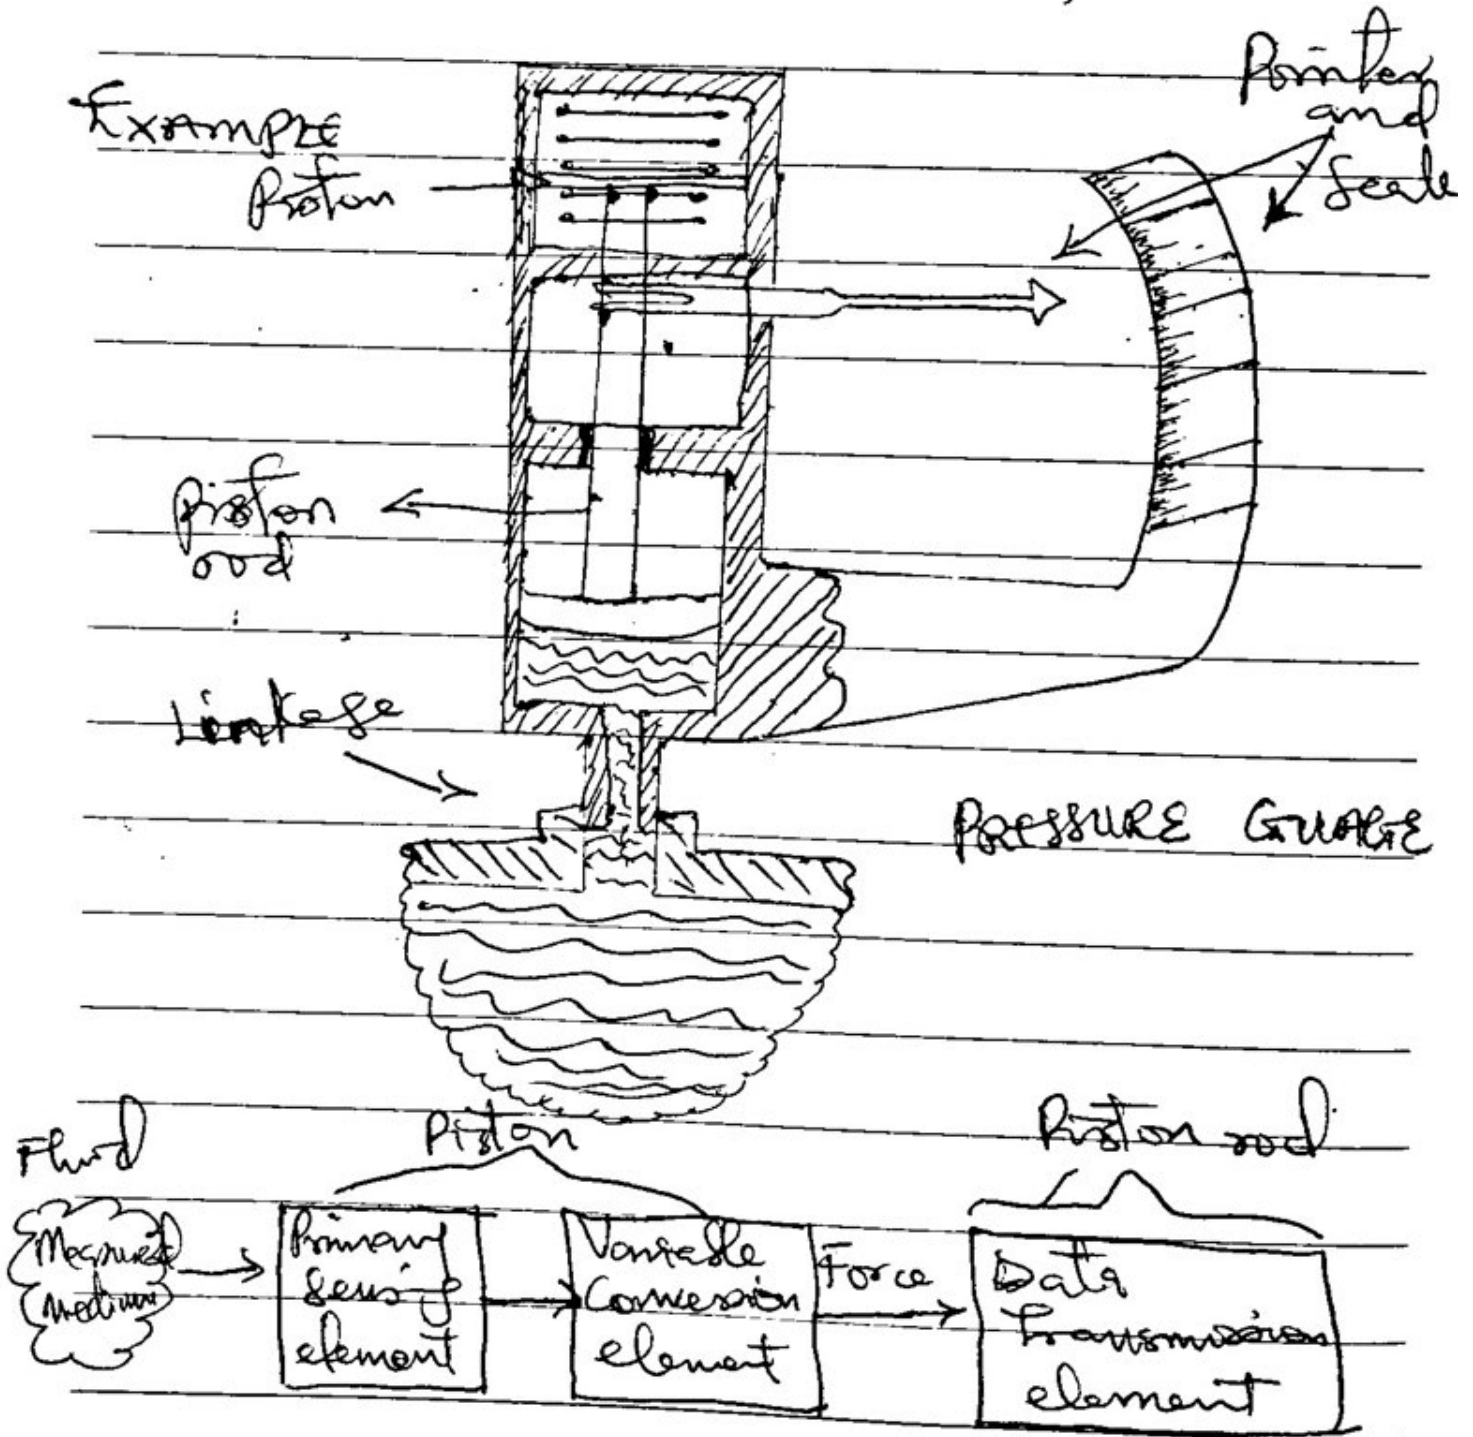 EXAMPLE
Pointer
and
Scale
Piston
Piston
rod
Linkage
PRESSURE GUAGE
Fluid
Piston
Piston rod
Measured
medium
Primary
Sensing
element
Variable
Conversion
element
Force
Data
Transmission
element